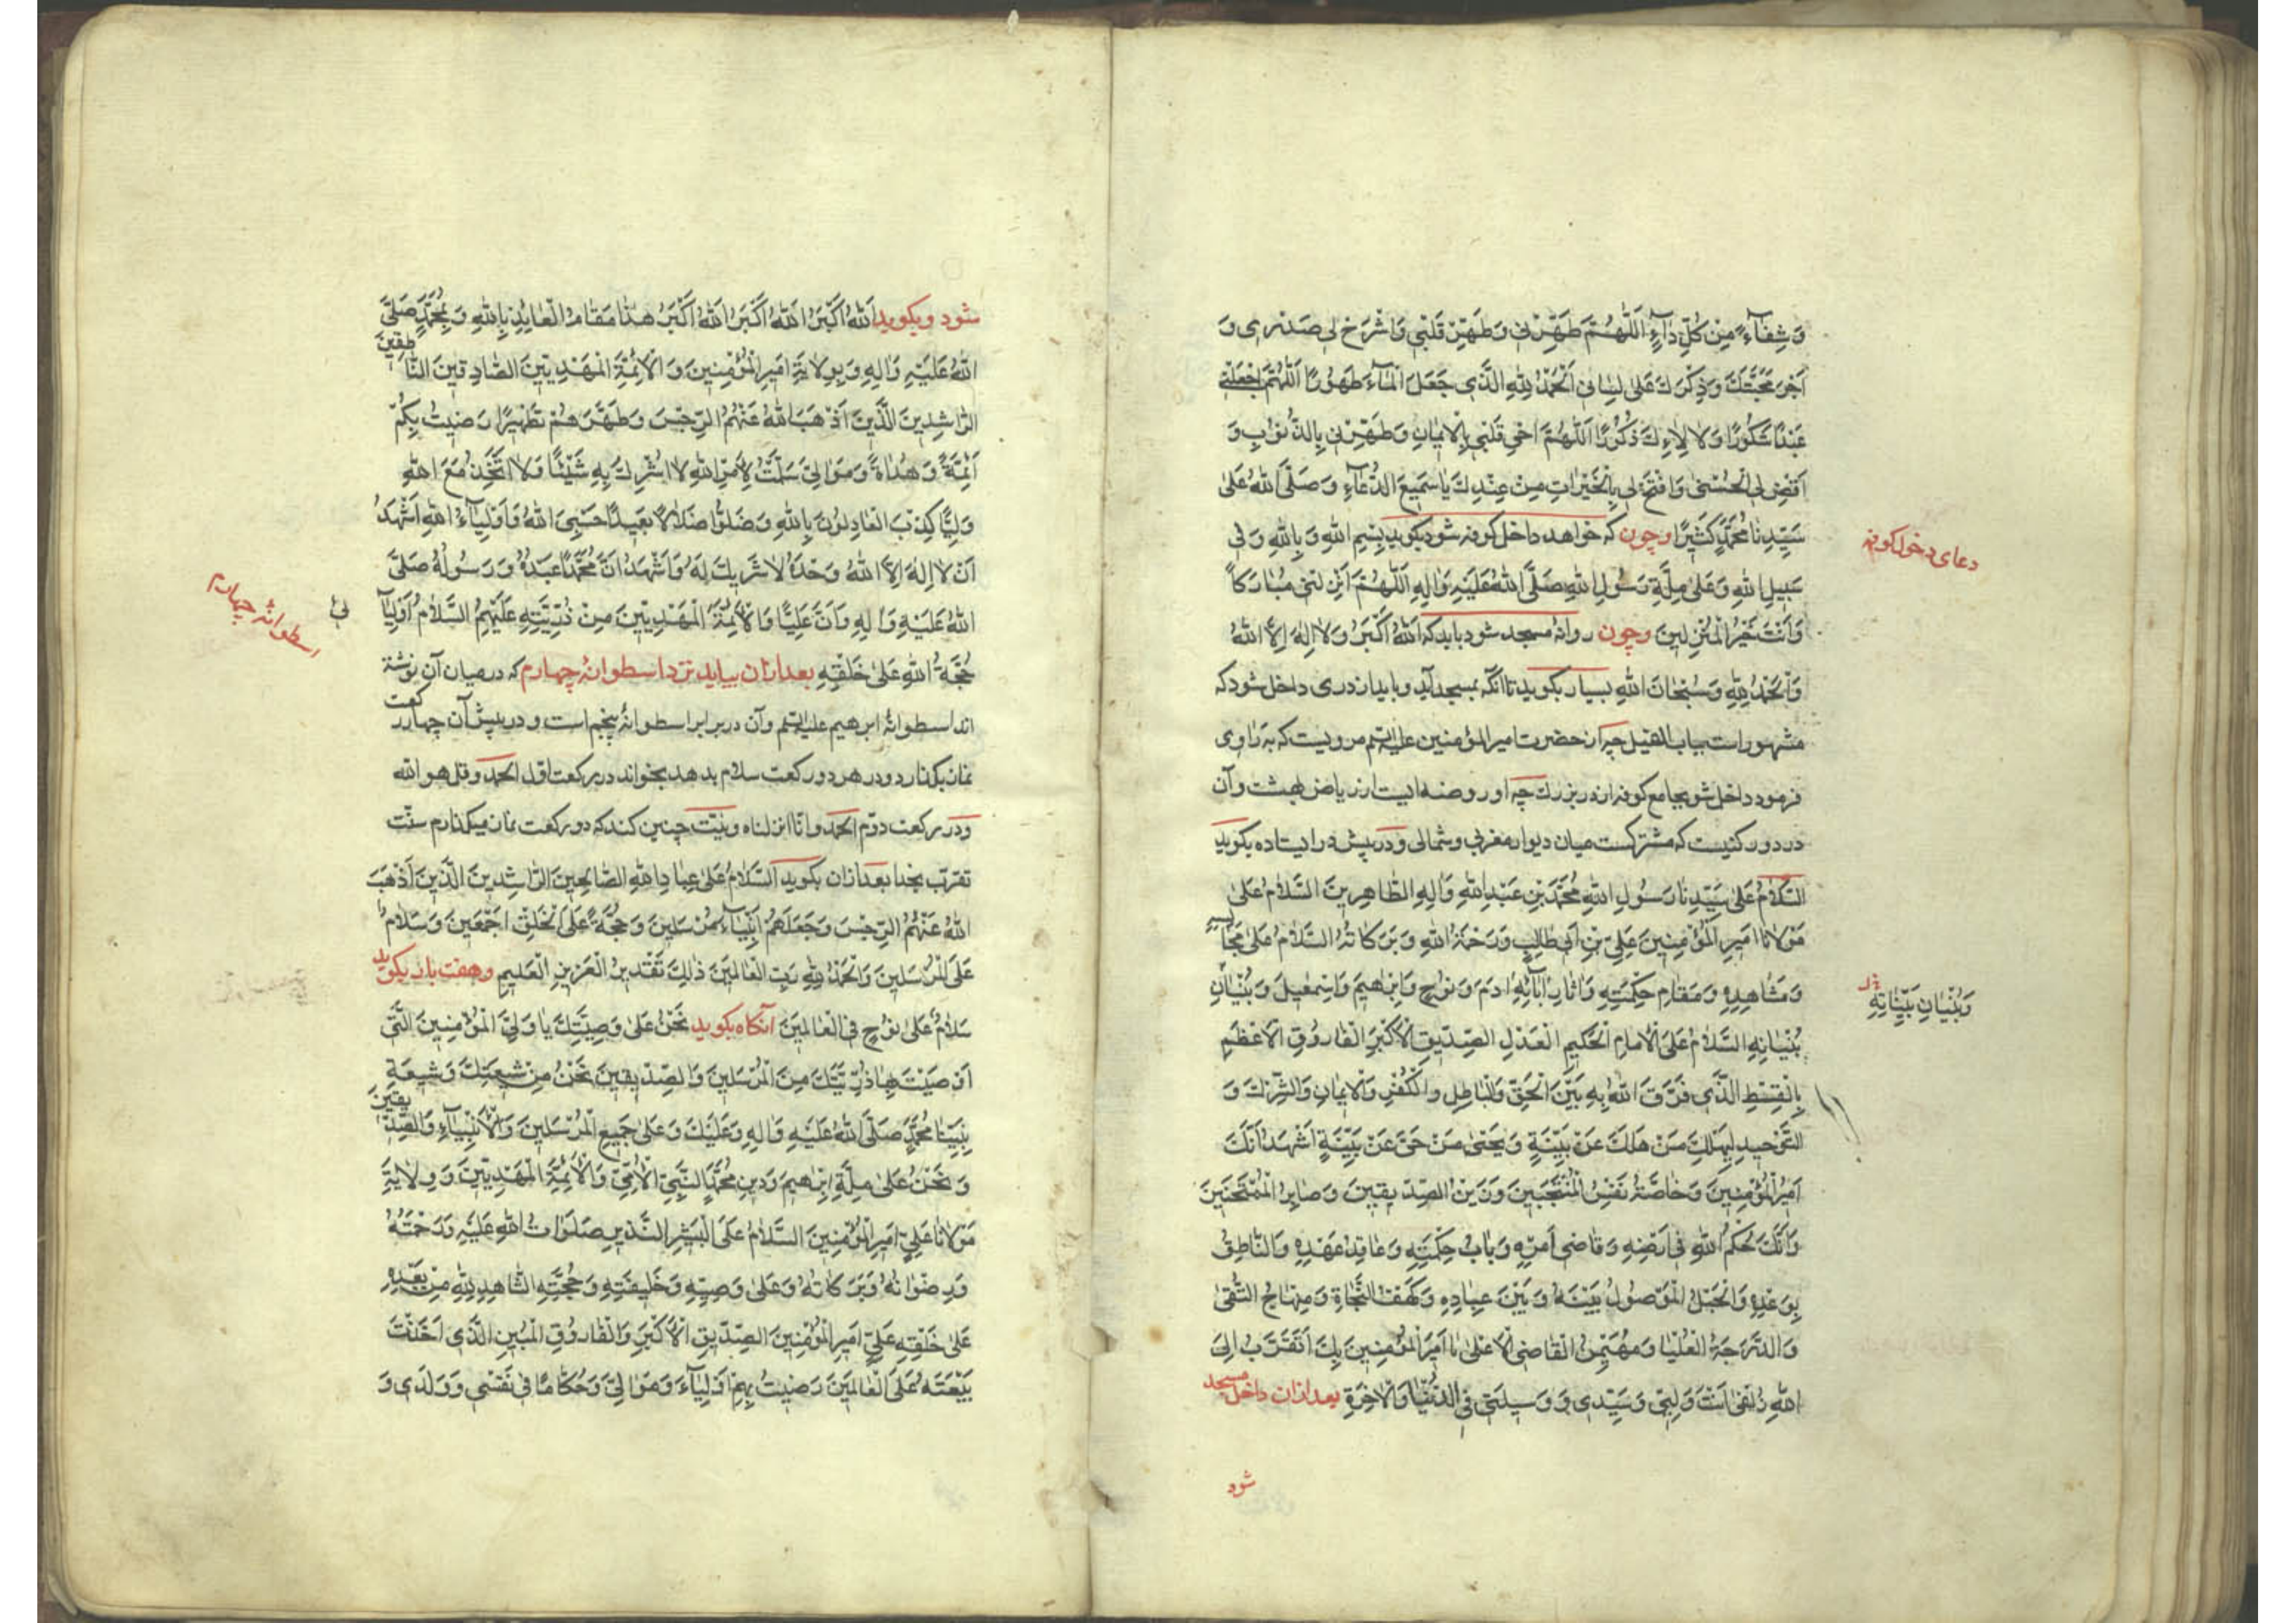 وَشِفَآءً مِنْ كُلِّ دَآءٍ اَللّٰهُمَّ طَهِّرْنى وَطَهِّرْ قَلْبى وَاشْرَحْ لى صَدْرى وَ
اَجْرِ مَحَبَّتَكَ وَذِكْرَكَ عَلىٰ لِسٰانى اَلْحَمْدُ لِلّٰهِ الَّذى جَعَلَ الْمٰآءَ طَهُورًا اَللّٰهُمَّ اجْعَلْنى
عَبْدًا شَكُورًا وَلِاٰلٰائِكَ ذَكُورًا اَللّٰهُمَّ اَحْىِ قَلْبى بِالْاِيمٰانِ وَطَهِّرْنى بِالذُّنُوبِ وَ
اَقْضِ لى الْحُسْنىٰ وَافْتَحْ لى بِالْخَيْرٰاتِ مِنْ عِنْدِكَ يٰا سَمِيعَ الدُّعٰآءِ وَصَلَّى اللّٰهُ عَلىٰ
سَيِّدِنٰا مُحَمَّدٍ كَثِيرًا وچون كه خواهد داخل كوفه شود بكويد بِسْمِ اللّٰهِ وَبِاللّٰهِ وَفى
دعاى دخول كوفه
سَبِيلِ اللّٰهِ وَعَلىٰ مِلَّةِ رَسُولِ اللّٰهِ صَلَّى اللّٰهُ عَلَيْهِ وَاٰلِهِ اَللّٰهُمَّ اَنْزِلْنى مُبٰارَكًا
وَاَنْتَ خَيْرُ الْمُنْزِلينَ وچون روانهٔ مسجد شود بايد كه اَللّٰهُ اَكْبَرُ وَلٰا اِلٰهَ اِلَّا اللّٰهُ
وَالْحَمْدُ لِلّٰهِ وَسُبْحٰانَ اللّٰهِ بسيار بكويد تا آنكه بمسجد آيد وبايد از درى داخل شود كه
مشهور است بباب الفيل چه از حضرت امير المؤمنين عليه السّلم مرويست كه به راوى
فرمود داخل شو بجامع كوفه از در بزرك چه او روضه ايست از رياض بهشت وآن
در دور كنيست كه مشتركست ميان ديوار مغربى وشمالى ودر پيش در ايستاده بكويد
اَلسَّلٰامُ عَلىٰ سَيِّدِنٰا رَسُولِ اللّٰهِ مُحَمَّدِ بْنِ عَبْدِ اللّٰهِ وَاٰلِهِ الطّٰاهِرِينَ اَلسَّلٰامُ عَلىٰ
مَوْلٰانٰا اَمِيرِ الْمُؤْمِنِينَ عَلِىِّ بْنِ اَبى طٰالِبٍ وَرَحْمَةُ اللّٰهِ وَبَرَكٰاتُهُ اَلسَّلٰامُ عَلىٰ مَجٰالِسِهِ
وَمَشٰاهِدِهِ وَمَقٰامِ حِكْمَتِهِ وَاٰثٰارِ اٰبٰائِهِ اٰدَمَ وَنُوحٍ وَاِبْرٰهِيمَ وَاِسْمٰعِيلَ وَبُنْيٰانِ
وَبُنْيٰانِ بَيِّنٰاتِهِ
بُنْيٰانِهِ اَلسَّلٰامُ عَلَى الْاِمٰامِ الْحَكِيمِ الْعَدْلِ الصِّدِّيقِ الْاَكْبَرِ الْفٰارُوقِ الْاَعْظَمِ
بِالْقِسْطِ الَّذى فَرَّقَ اللّٰهُ بِهِ بَيْنَ الْحَقِّ وَالْبٰاطِلِ وَالْكُفْرِ وَالْاِيمٰانِ وَالشِّرْكِ وَ
التَّوْحِيدِ لِيَهْلِكَ مَنْ هَلَكَ عَنْ بَيِّنَةٍ وَيَحْيىٰ مَنْ حَىَّ عَنْ بَيِّنَةٍ اَشْهَدُ اَنَّكَ
اَمِيرُ الْمُؤْمِنِينَ وَخٰاصَّةُ نَفْسِ الْمُنْتَجَبِينَ وَزَيْنُ الصِّدِّيقِينَ وَصٰابِرُ الْمُمْتَحَنِينَ
وَاَنَّكَ حَكَمُ اللّٰهِ فى اَرْضِهِ وَقٰاضى اَمْرِهِ وَبٰابُ حِكْمَتِهِ وَعٰاقِدُ عَهْدِهِ وَالنّٰاطِقُ
بِوَعْدِهِ وَالْحَبْلُ الْمَوْصُولُ بَيْنَهُ وَبَيْنَ عِبٰادِهِ وَكَهْفُ النَّجٰاةِ وَمِنْهٰاجُ التُّقىٰ
وَالدَّرَجَةُ الْعُلْيٰا وَمُهَيْمِنُ الْقٰاضى الْاَعْلىٰ يٰا اَمِيرَ الْمُؤْمِنِينَ بِكَ اَتَقَرَّبُ اِلَى
اللّٰهِ زُلْفىٰ اَنْتَ وَلِيّى وَسَيِّدى وَوَسِيلَتى فى الدُّنْيٰا وَالْاٰخِرَةِ بعد ازان داخل مسجد
شود
شود وبكويد اَللّٰهُ اَكْبَرُ اَللّٰهُ اَكْبَرُ اَللّٰهُ اَكْبَرُ هٰذٰا مَقٰامُ الْعٰائِذِ بِاللّٰهِ وَبِمُحَمَّدٍ صَلَّى
اللّٰهُ عَلَيْهِ وَاٰلِهِ وَبِوِلٰايَةِ اَمِيرِ الْمُؤْمِنِينَ وَالْاَئِمَّةِ الْمَهْدِيِّينَ الصّٰادِقِينَ النّٰاطِقِينَ
الرّٰاشِدِينَ الَّذِينَ اَذْهَبَ اللّٰهُ عَنْهُمُ الرِّجْسَ وَطَهَّرَهُمْ تَطْهِيرًا رَضِيتُ بِكُمْ
اَئِمَّةً وَهُدٰاةً وَمَوٰالِىَّ سَلَّمْتُ لِاَمْرِ اللّٰهِ لٰا اُشْرِكُ بِهِ شَيْئًا وَلٰا اَتَّخِذُ مَعَ اللّٰهِ
وَلِيًّا كَذَبَ الْعٰادِلُونَ بِاللّٰهِ وَضَلُّوا ضَلٰالًا بَعِيدًا حَسْبِىَ اللّٰهُ وَاَوْلِيٰآءُ اللّٰهِ اَشْهَدُ
اَنْ لٰا اِلٰهَ اِلَّا اللّٰهُ وَحْدَهُ لٰا شَرِيكَ لَهُ وَاَشْهَدُ اَنَّ مُحَمَّدًا عَبْدُهُ وَرَسُولُهُ صَلَّى
اللّٰهُ عَلَيْهِ وَاٰلِهِ وَاَنَّ عَلِيًّا وَالْاَئِمَّةَ الْمَهْدِيِّينَ مِنْ ذُرِّيَّتِهِ عَلَيْهِمُ السَّلٰامُ اَوْلِيٰآ
ئى
اسطوانهٔ چهارم
حُجَّةُ اللّٰهِ عَلىٰ خَلْقِهِ بعد ازان بيايد نزد اسطوانهٔ چهارم كه درميان آن نوشته
اند اسطوانهٔ ابرهيم عليه السّلم وآن در برابر اسطوانهٔ پنجم است ودر پيش آن چهار ركعت
نماز بكذارد ودر هر دو ركعت سلام بدهد بخواند در ركعت اوّل الحمد وقل هو الله
ودر ركعت دوّم الحمد وانّا انزلناه ونيّت چنين كند كه دو ركعت نماز ميكذارم سنّت
تقرّب بخدا بعد ازان بكويد اَلسَّلٰامُ عَلىٰ عِبٰادِ اللّٰهِ الصّٰالِحِينَ الرّٰاشِدِينَ الَّذِينَ اَذْهَبَ
اللّٰهُ عَنْهُمُ الرِّجْسَ وَجَعَلَهُمْ اَنْبِيٰآءَ مُرْسَلِينَ وَحُجَّةً عَلَى الْخَلْقِ اَجْمَعِينَ وَسَلٰامٌ
عَلَى الْمُرْسَلِينَ وَالْحَمْدُ لِلّٰهِ رَبِّ الْعٰالَمِينَ ذٰلِكَ تَقْدِيرُ الْعَزِيزِ الْعَلِيمِ وهفت بار بكويد
سَلٰامٌ عَلىٰ نُوحٍ فى الْعٰالَمِينَ آنكاه بكويد نَحْنُ عَلىٰ وَصِيَّتِكَ يٰا وَلِىَّ الْمُؤْمِنِينَ الَّتى
اَوْصَيْتَ بِهٰا ذُرِّيَّتَكَ مِنَ الْمُرْسَلِينَ وَالصِّدِّيقِينَ نَحْنُ مِنْ شِيعَتِكَ وَشِيعَةِ
نَبِيِّنٰا مُحَمَّدٍ صَلَّى اللّٰهُ عَلَيْهِ وَاٰلِهِ وَعَلَيْكَ وَعَلىٰ جَمِيعِ الْمُرْسَلِينَ وَالْاَنْبِيٰآءِ وَالصِّدِّيقِينَ
وَنَحْنُ عَلىٰ مِلَّةِ اِبْرٰهِيمَ وَدِينِ مُحَمَّدٍ النَّبِىِّ الْاُمِّىِّ وَالْاَئِمَّةِ الْمَهْدِيِّينَ وَوِلٰايَةِ
مَوْلٰانٰا عَلِىٍّ اَمِيرِ الْمُؤْمِنِينَ اَلسَّلٰامُ عَلَى الْبَشِيرِ النَّذِيرِ صَلَوٰاتُ اللّٰهِ عَلَيْهِ وَرَحْمَتُهُ
وَرِضْوٰانُهُ وَبَرَكٰاتُهُ وَعَلىٰ وَصِيِّهِ وَخَلِيفَتِهِ وَحُجَّتِهِ الشّٰاهِدِ لِلّٰهِ مِنْ بَعْدِهِ
عَلىٰ خَلْقِهِ عَلِىٍّ اَمِيرِ الْمُؤْمِنِينَ الصِّدِّيقِ الْاَكْبَرِ وَالْفٰارُوقِ الْمُبِينِ الَّذى اَخَذْتَ
بَيْعَتَهُ عَلَى الْعٰالَمِينَ رَضِيتُ بِهِمْ اَوْلِيٰآءَ وَمَوٰالِىَ وَحُكّٰامًا فى نَفْسى وَوَلَدى وَ